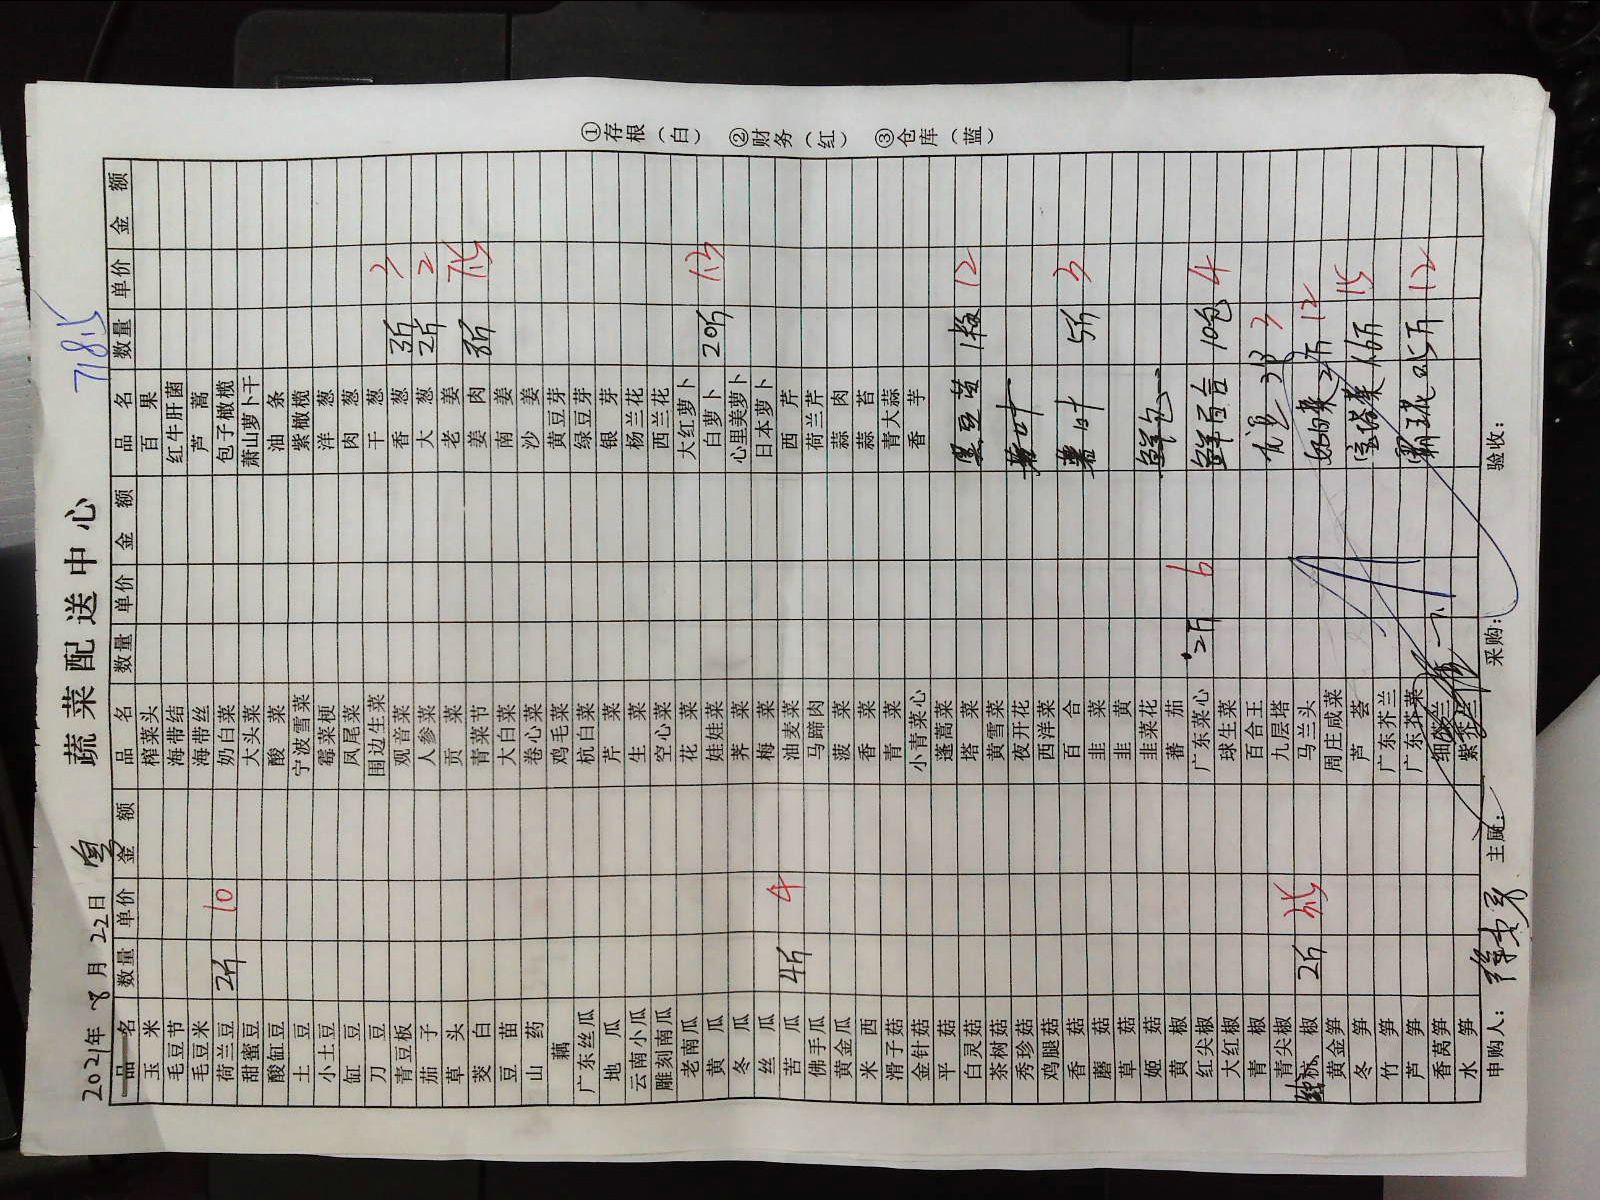 蔬菜配送中心
7185
2021年 8 月 22 日
品名 数量 单价 金额 品名 数量 单价 金额 品名 数量 单价 金额
玉米 榨菜头 百果
毛豆节 海带结 红牛肝菌
毛豆米 海带丝 芦蒿
荷兰豆 2斤 10 奶白菜 包子橄榄
甜蜜豆 大头菜 萧山萝卜干
酸缸豆 酸菜 油条
土豆 宁波雪菜 紫橄榄
小土豆 霉菜梗 洋葱
缸豆 凤尾菜 肉葱
刀豆 围边生菜 干葱
青豆板 观音菜 香葱 3斤
茄子 人参菜 大葱 2斤 2
草头 贡菜 老姜
茭白 青菜节 姜肉 3斤
豆苗 大白菜 南姜
山药 卷心菜 沙姜
藕 鸡毛菜 黄豆芽
广东丝瓜 杭白菜 绿豆芽
地瓜 芹菜 银芽
云南小瓜 生菜 杨兰花
雕刻南瓜 空心菜 西兰花
老南瓜 花菜 大红萝卜
黄瓜 娃娃菜 白萝卜 20斤
冬瓜 荠菜 心里美萝卜
丝瓜 梅菜 日本萝卜
苦瓜 4斤 4 油麦菜 西芹
佛手瓜 马蹄肉 荷兰芹
黄金瓜 菠菜 蒜肉
米西 香菜 蒜苔
滑子菇 青菜 青大蒜
金针菇 小青菜心 香芋
平菇 蓬蒿菜
白灵菇 塔菜 黑豆苗 12
茶树菇 黄雪菜
秀珍菇 夜开花
鸡腿菇 西洋菜
香菇 百合 5斤 3
蘑菇 韭菜
草菇 韭黄
姬菇 韭菜花 鲜包
黄椒 蕃茄
红尖椒 广东菜心 2斤 6 鲜百合 10包 4
大红椒 球生菜
青椒 百合王 3
青尖椒 九层塔
杭椒 2斤 马兰头 12
黄金笋 周庄咸菜
冬笋 芦荟 15
竹笋 广东芥兰
芦笋 广东芥菜 12
香莴笋
水笋
申购人： 主厨： 采购： 验收：
①存根（白） ②财务（红） ③仓库（蓝）